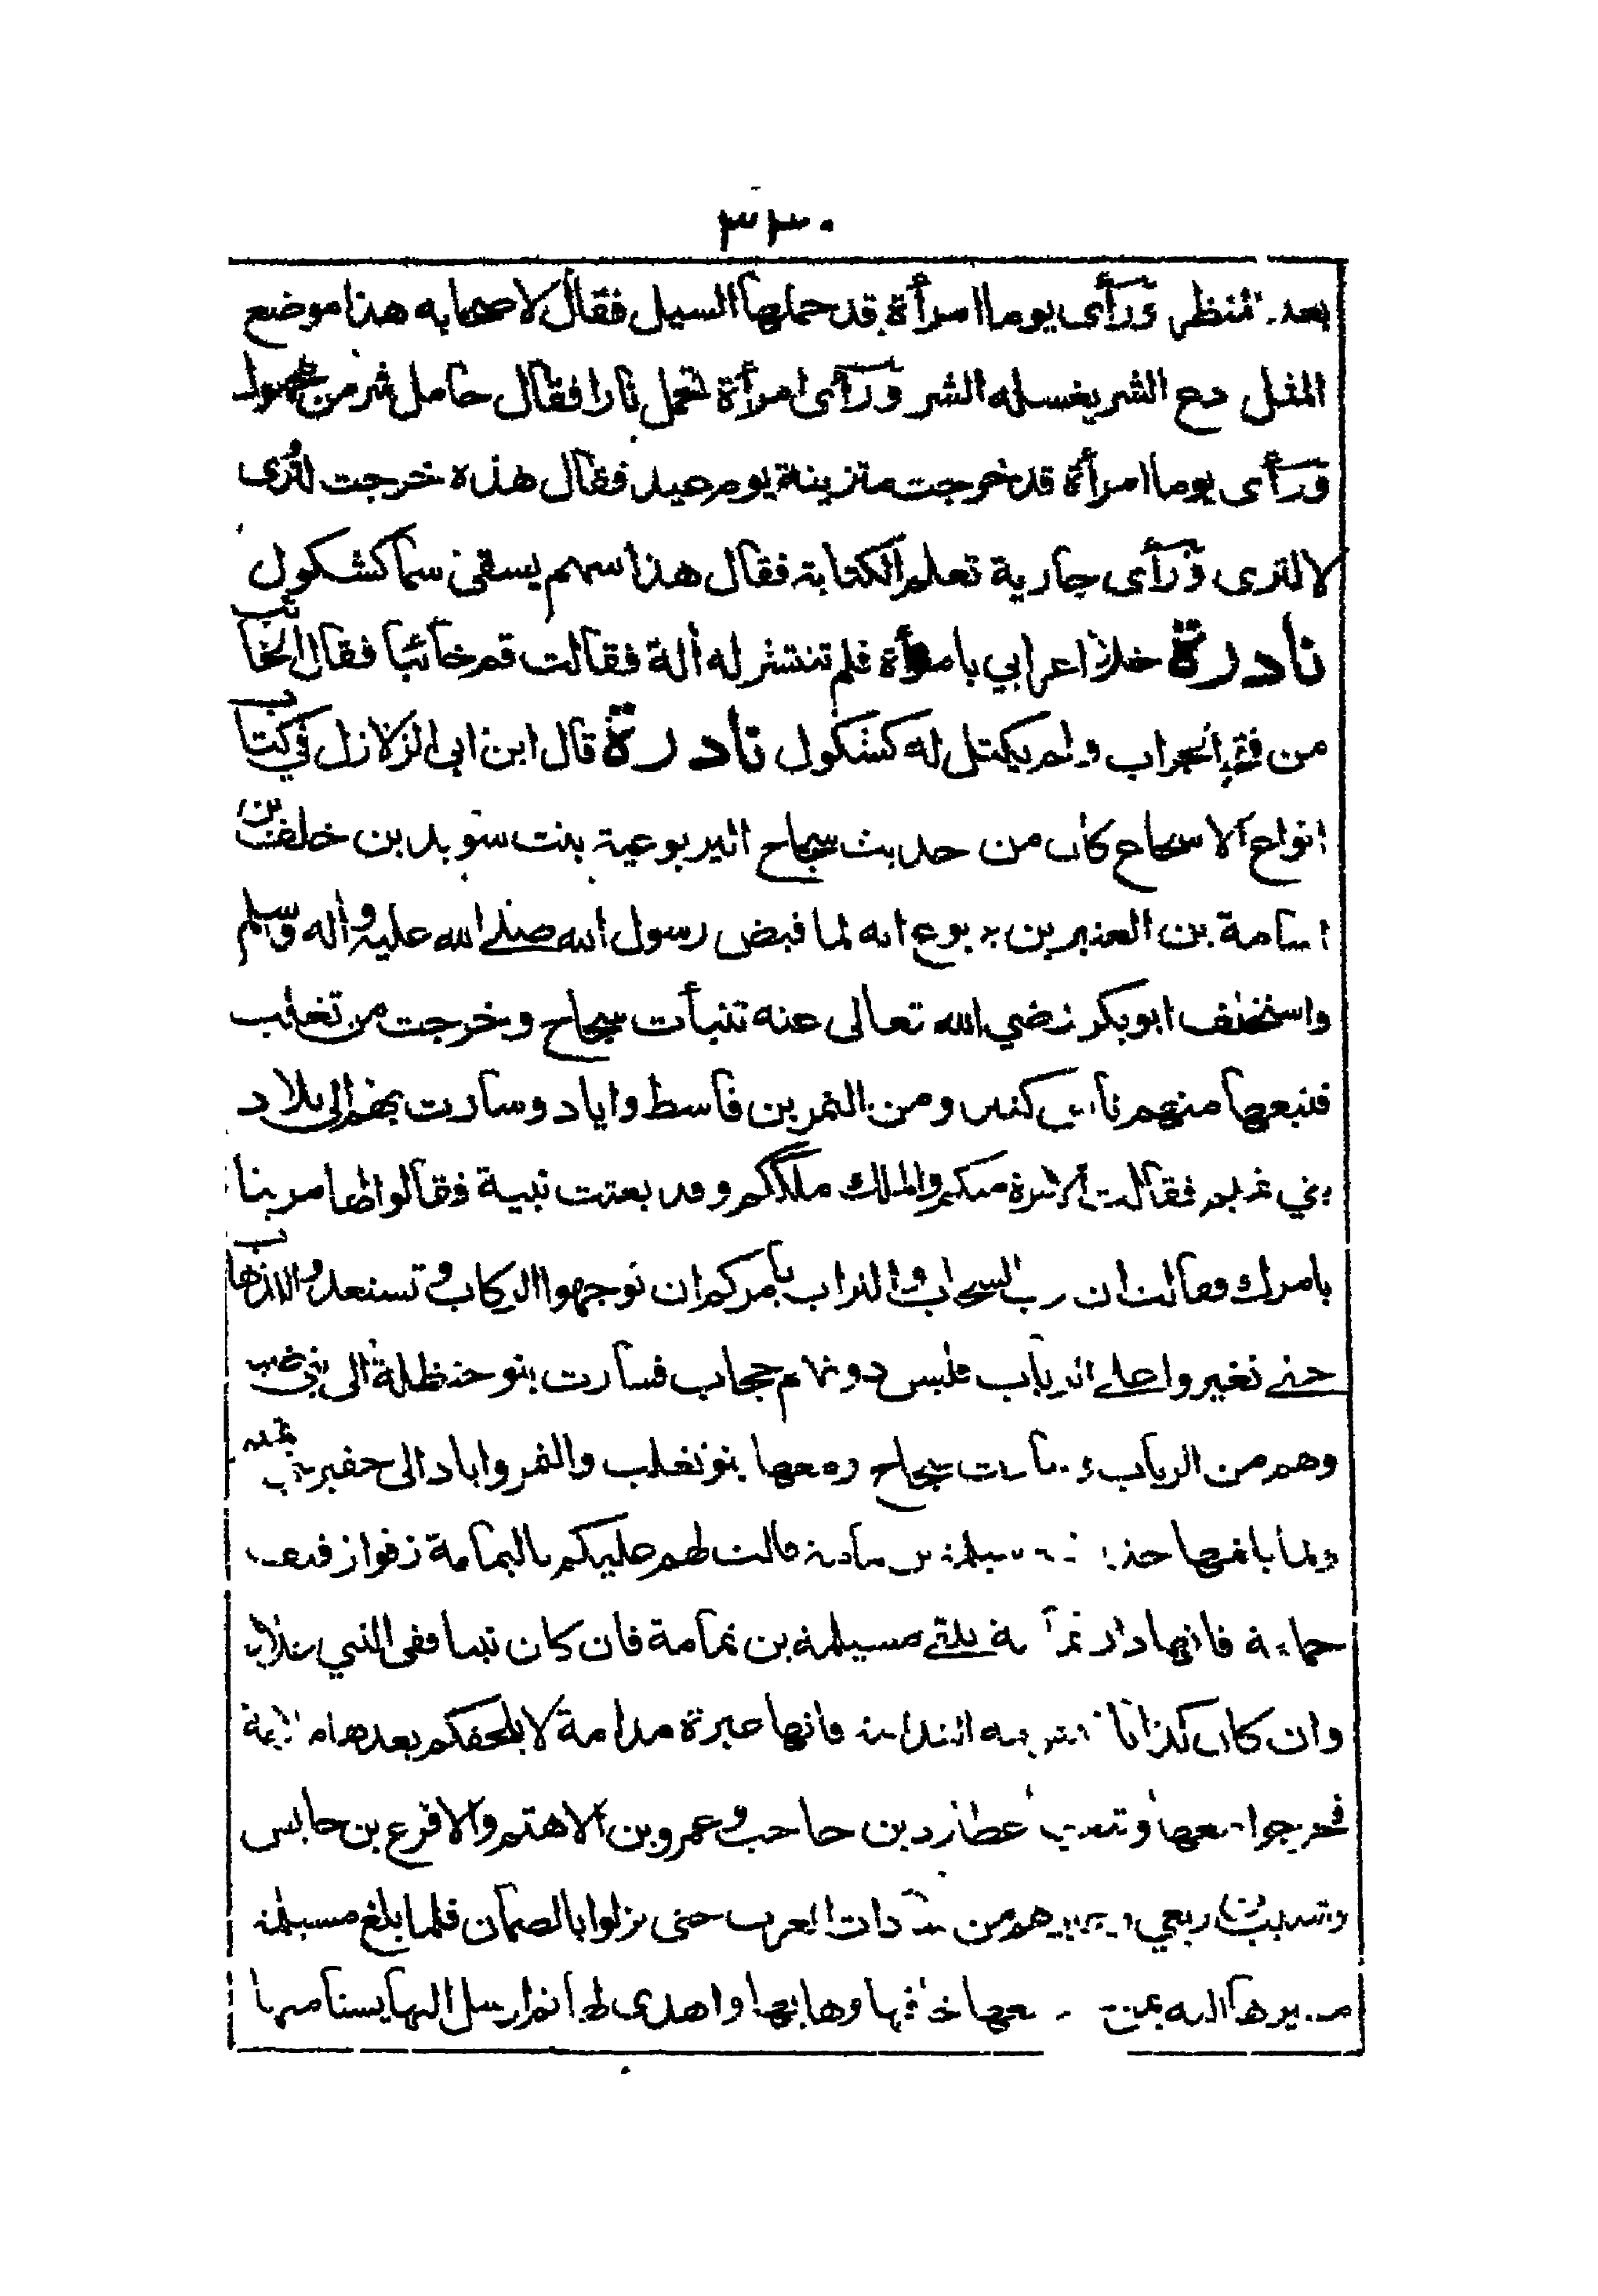 ٣٣٠
بعد تنظر ورأى يوما امرأة قد حملها السيل فقال لاصحابه هذا موضع
المثل دع الشر يغسله الشر ورأى امرأة تحمل نارا فقال حامل شر من محمول
ورأى يوما امرأة قد خرجت متزينة يوم عيد فقال هذه خرجت لترى
لا لترى ورأى جارية تعلم الكتابة فقال هذا سهم يسقى سما كشكول
نادرة خلا اعرابي بامرأة فلم تنتشر له ألة فقالت قم خائبا فقال الخائب
من فتح الجراب ولم يكتل له كشكول نادرة قال ابن ابي الزلازل في كتاب
انواع الاسجاع كان من حديث سجاح اليربوعية بنت سويد بن خلف بن
اسامة بن العنبر بن يربوع انه لما قبض رسول الله صلى الله عليه وآله وسلم
واستخلف ابوبكر رضي الله تعالى عنه تنبأت سجاح وخرجت من تغلب
فتبعها منهم ناس كثير ومن النمر بن قاسط واياد وسارت بهم الى بلاد
بني تميم فقالت امرة منكم والملك ملككم وقد بعثت نبية فقالوا لها مرينا
بامرك فقالت ان رب السحاب والتراب يأمركم ان توجهوا الركاب وتستعدوا للذهاب
حتى تغيروا على الرباب فليس دونهم حجاب فسارت بنو حنظلة الى بني ضبة
وهم من الرباب وسارت سجاح ومعها بنو تغلب والنمر واياد الى حفير بني تميم
ولما بلغها مسيلمة قالت لهم عليكم باليمامة زفوا زفيف
حمامة فانها دار يلقى مسيلمة بن ثمامة فان كان نبيا ففي النبي علامة
وان كان كذابا الندامة فانها غبرة مدامة لا يلحقكم بعدها ملامة
فخرجوا معها وتبعها عطارد بن حاجب وعمرو بن الاهتم والاقرع بن حابس
وشبث بن ربعي وغيرهم من سادات العرب حتى نزلوا بالصمان فلما بلغ مسيلمة
مسيرها اليه بمن معها خافها وهابها واهدى لها ثم ارسل اليها يستأمنها